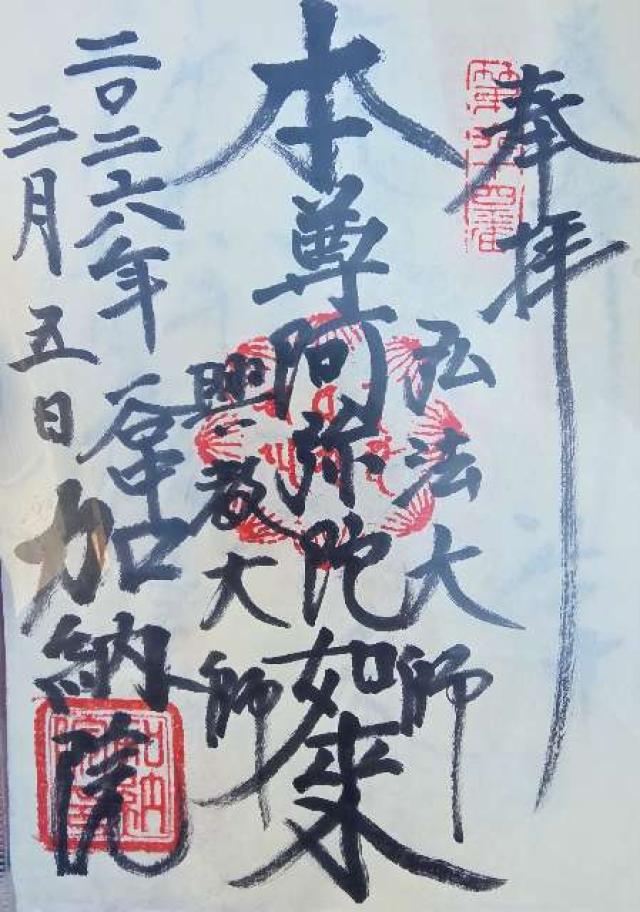 奉拝
弘法大師
本尊阿弥陀如来
興教大師
二〇二六年 谷中 加納院
三月五日